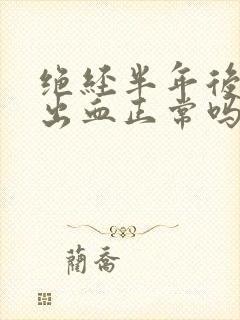 绝经半年後
出血正常吗
蔺乔